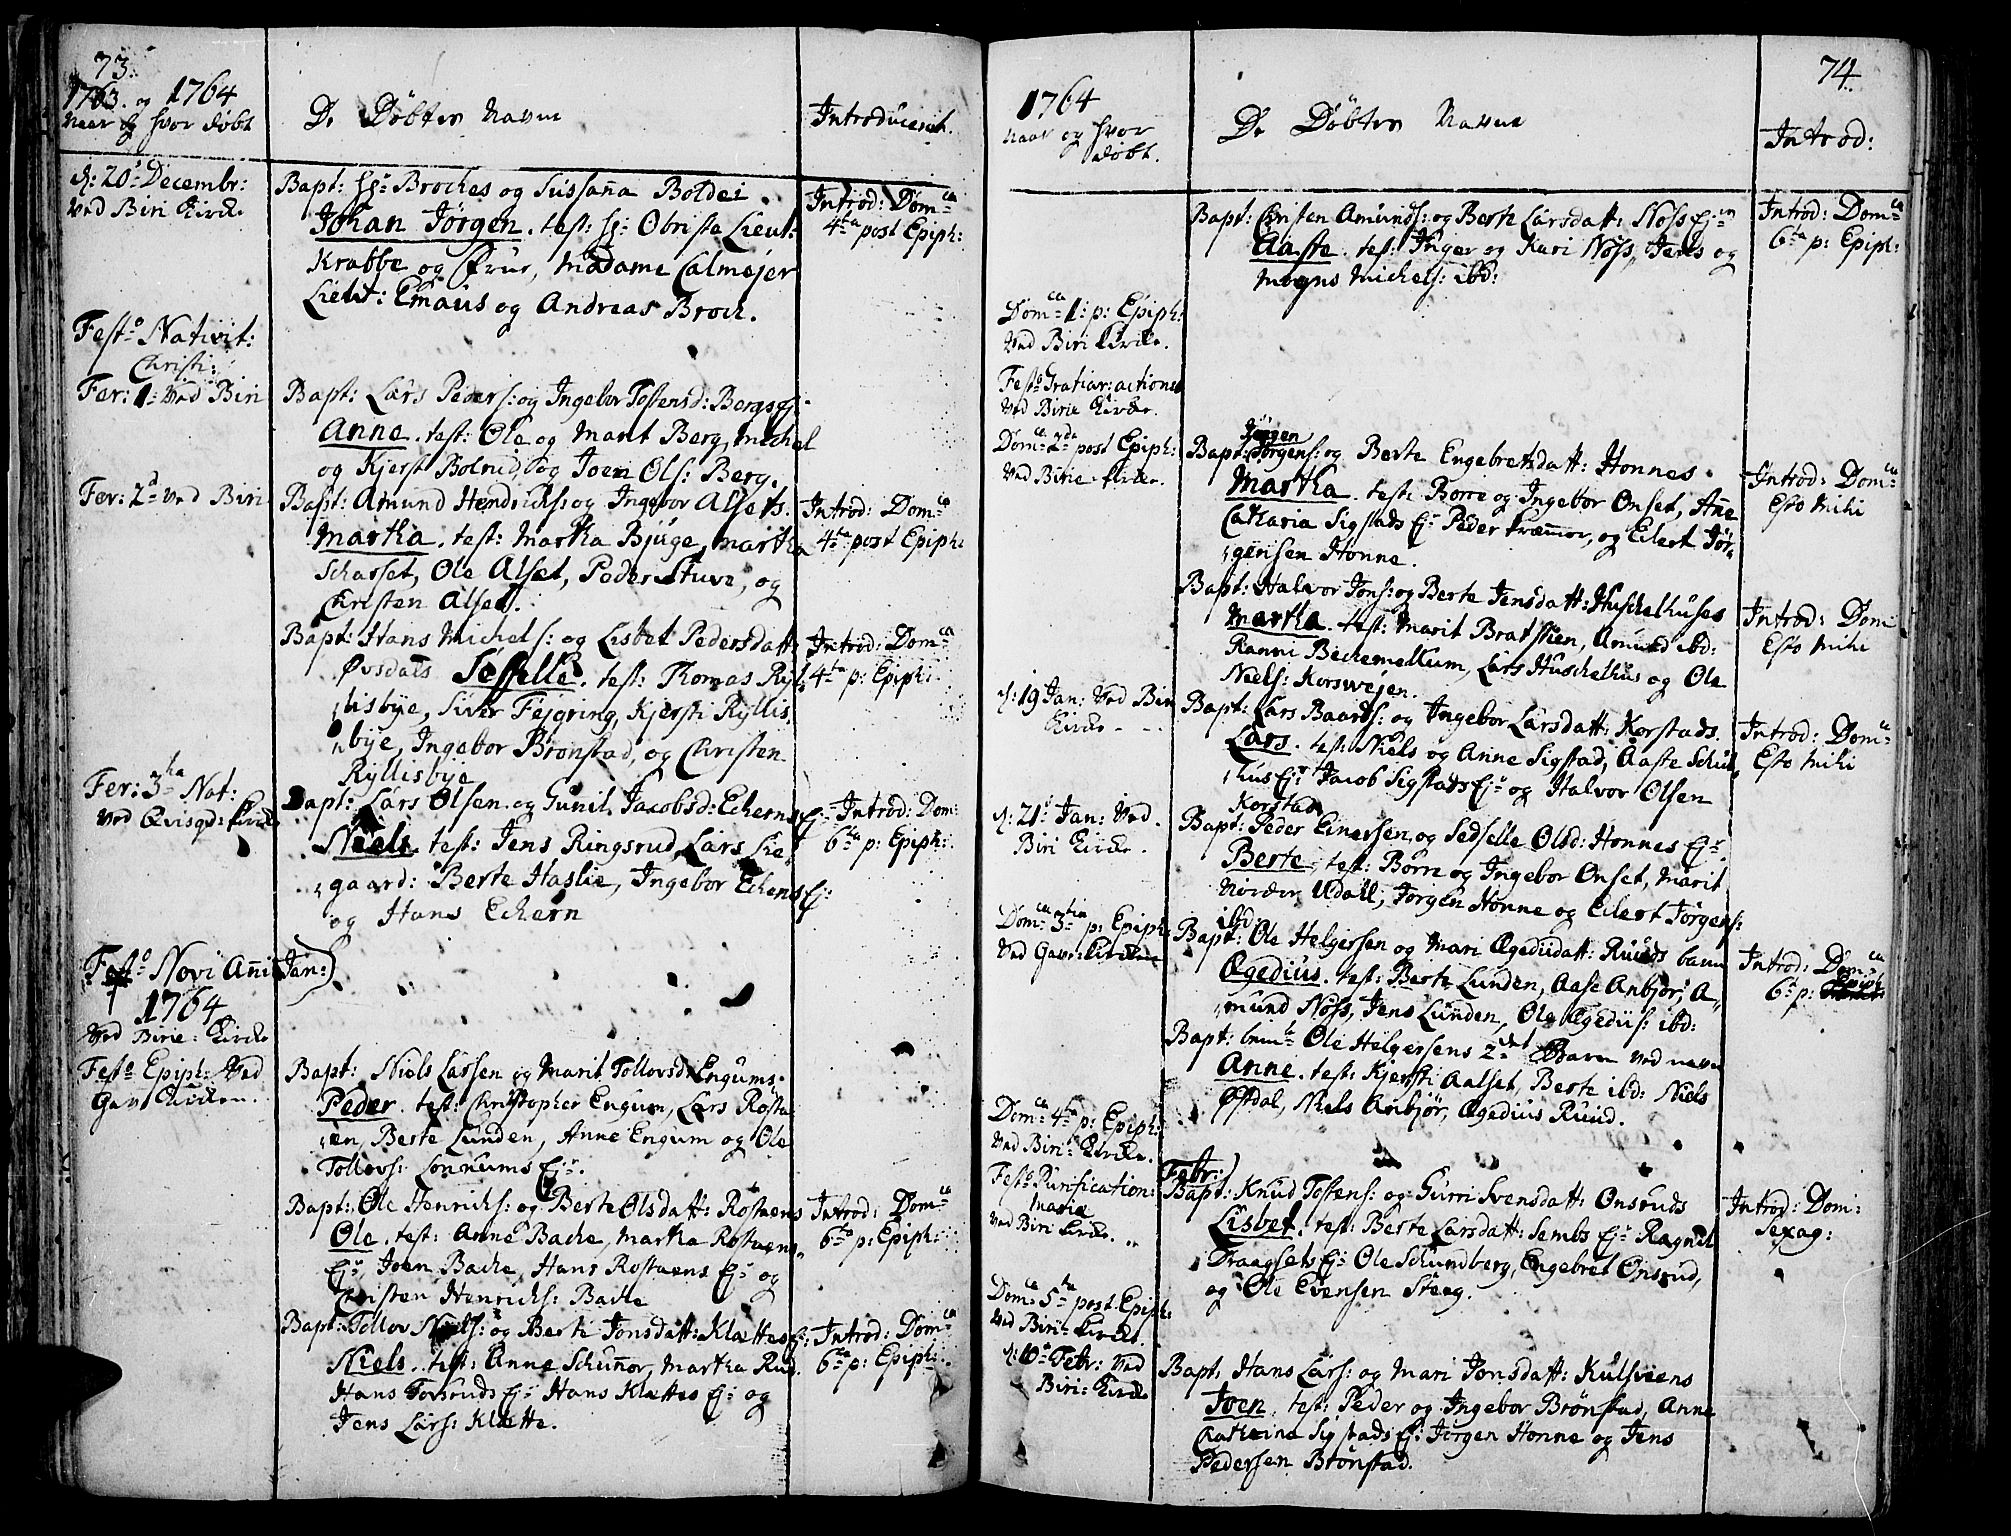 73.
1763. og 1764
Naar og hvor døbt
De Døbtes Navne
Introduceret.
d: 20de Decembr:
Ved Biri Kirke.
Bapt: Hr: Broches og Sussanna Boldei.
Johan Jørgen. test: Hr: Obriste Lieut:
Krabbe og Frue, Madame Calmejer
Lieut: Emaus og Andreas Broch.
Introd: Domca
4ta post Epiph:
Festo Nativit:
Christi:
Fer: 1: Ved Biri
Bapt: Lars Peders: og Ingebor Tostensd: Bergs ej:
Anne. test: Ole og Marit Berg, Michel
og Kjerst Bolrud, og Joen Ols: Berg.
Fer: 2d Ved Biri
Bapt: Amund Hendricks: og Ingebor Alsets.
Martha. test: Martha Bjuge, Martha
Scharset, Ole Alset, Peder Stuve, og
Christen Alset.
Introd: Domca
4ta post Epiph:
Bapt: Hans Michels: og Lisbet Pedersdatt:
Øvsdals Sesselle. test: Thomas Ryl-
lisbye, Siver Fejgring, Kjersti Ryllis
bye, Ingebor Brønstad, og Christen
Ryllisbye
Introd: Domca
4ta p: Epiph:
Fer: 3tia Nat:
Ved Qvisgd: Kirke
Bapt: Lars Olsen og Gunil Jacobsd: Echerns Ej:
Niels. test: Jens Ringsrud, Lars Lie-
gaard: Berte Haslie, Ingebor Echens Ej:
og Hans Echern
Introd: Dom:
6ta p: Epiph:
Festo Novi Anni Jan:)
1764
Ved Birie: Kirke
Festo Epiph: Ved
Gav: Kirken.
Bapt: Niels Lassen og Marit Tollovsd: Engums.
Peder. test: Christopher Engum, Lars Rosta
en, Berte Lunden, Anne Engum og Ole
Tollovs: Lonnums Ejr.
Bapt: Ole Henricks: og Berte Olsdatt: Rostaens
Ole. test: Anne Bache, Martha Rostaens
Ejr Joen Bache, Hans Rostaens Ejr og
Christen Henricks: Bache
Introd: Domca
6ta p: Epiph:
Bapt: Tollov Niels: og Berte Jonsdatt: Klættes Ej:
Niels. test: Anne Schunnor, Martha Rud.
Hans Torsruds Ejr Hans Klættes Ejr og
Jens Lars: Klætte.
Introd: Domca
6ta p: Epiph:
74.
1764
Naar og hvor
døbt.
De Døbtes Navne
Introd:
Bapt: Christen Amunds: og Berte Larsdatt: Nøss Ejr
Aaste. test: Inger og Kari Nøss, Jens og
Mogns Michels: ibd:
Introd: Domca
6ta p: Epiph:
Domca 1: p: Epiph:
Ved Biri Kirke.
Festo Gratiar: actionis
Ved Birie Kirke.
Domca 2da post Epiph:
Ved Birie Kirke.
Jørgen
Bapt: Jørgens: og Berte Engebretsdatt: Honnes.
Martha. test: Borre og Ingebor Onset, Anne
Catharia Sigstads Ejr Peder Kræmmer, og Eilert Jør-
gensen Honne.
Introd: Domca
Esto Mihi
Bapt: Halvor Jons: og Berte Jensdatt: Huschelhuses
Martha. test: Marit Bratstien, Amund ibd:
Ranni Bechemellum, Lars Huschelhus og Ole
Niels: Korsvejen.
Introd: Dom
Esto Mihi
d: 19 Jan: Ved Biri
Kirke
Bapt: Lars Baards: og Ingebor Larsdatt: Korstads.
Lars. test: Niels og Anne Sigstad, Aaste Schul
hus Ejr Jacob Sigstads Ejr og Halvor Olsen
Korstad
Introd: Domca
Esto Mihi
d: 21de Jan: Ved
Biri Kirke.
Bapt: Peder Einersen og Sedselle Olsd: Honnes Ejr.
Berte. test: Børre og Ingebor Onset, Marit
Nordre Udall, Jørgen Honne og Eilert Jørgens:
ibd:
Domca 3tia p: Epiph:
Ved Gavs: Kirken
Bapt: Ole Helgersen og Mari Ægediidatt: Ruuds barn
Ægedius. test: Berte Lunden, Aase Anbjør, A-
mund Nøss, Jens Lunden, Ole Ægedius: ibd:
Introd: Domca
6ta p: Epiph
Bapt: Ole Helgersens 2det Barn ved navn
Anne. test: Kjersti Aalset, Berte ibd: Niels
Østdal, Niels Anbjør, Ægedius Ruud.
Domca 4ta p: Epiph:
Ved Biri: Kirke.
Festo Purification:
Mariæ
Ved Biri Kirke.
Febr:)
Bapt: Knud Tostens: og Gurri Svensdatt: Onsruds
Lisbet. test: Berte Larsdatt: Sembs Ejr Ragnil
Draagsets Ejr Ole Schundberg, Engebret Onsrud,
og Ole Evensen Steeg.
Introd: Dom:
Sexag:
Domca 5ta post Epiph:
Ved Biri: Kirke.
d: 10de Febr: Ved
Biri: Kirke
Bapt. Hans Lars: og Mari Jonsdatt: Kulsveens
Joen. test: Peder og Ingebor Brønstad, Anne
Cathrina Sigstads Ej: Jørgen Honne og Jens
Pedersen Brønstad.